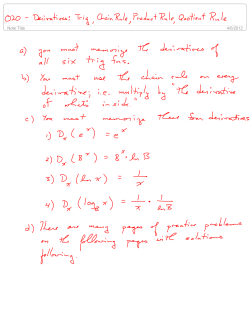 020 - Derivatives: Trig, Chain Rule, Product Rule, Quotient Rule
Note Title
4/6/2012
a) you must memorize the derivatives of
all six trig fns.
b) You must use the chain rule on every
derivative; i.e. multiply by "the derivative
of what's inside"
c) You must memorize these four derivatives
1) Dₓ(eˣ) = eˣ
2) Dₓ(Bˣ) = Bˣ · ln B
3) Dₓ(ln x) = 1/x
4) Dₓ(log_B x) = 1/x · 1/ln B
d) There are many pages of practice problems
on the following pages with solutions
following.